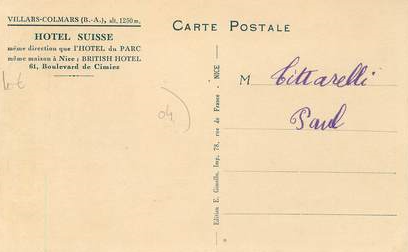 VILLARS-COLMARS (B.-A.), alt. 1250 m,
HOTEL SUISSE
même direction que l'HOTEL du PARC
même maison à Nice : BRITISH HOTEL
61, Boulevard de Cimiez
CARTE POSTALE
M Tittarelli
Paul
04)
Edition E. Gimello, Imp, 78, rue de France - NICE